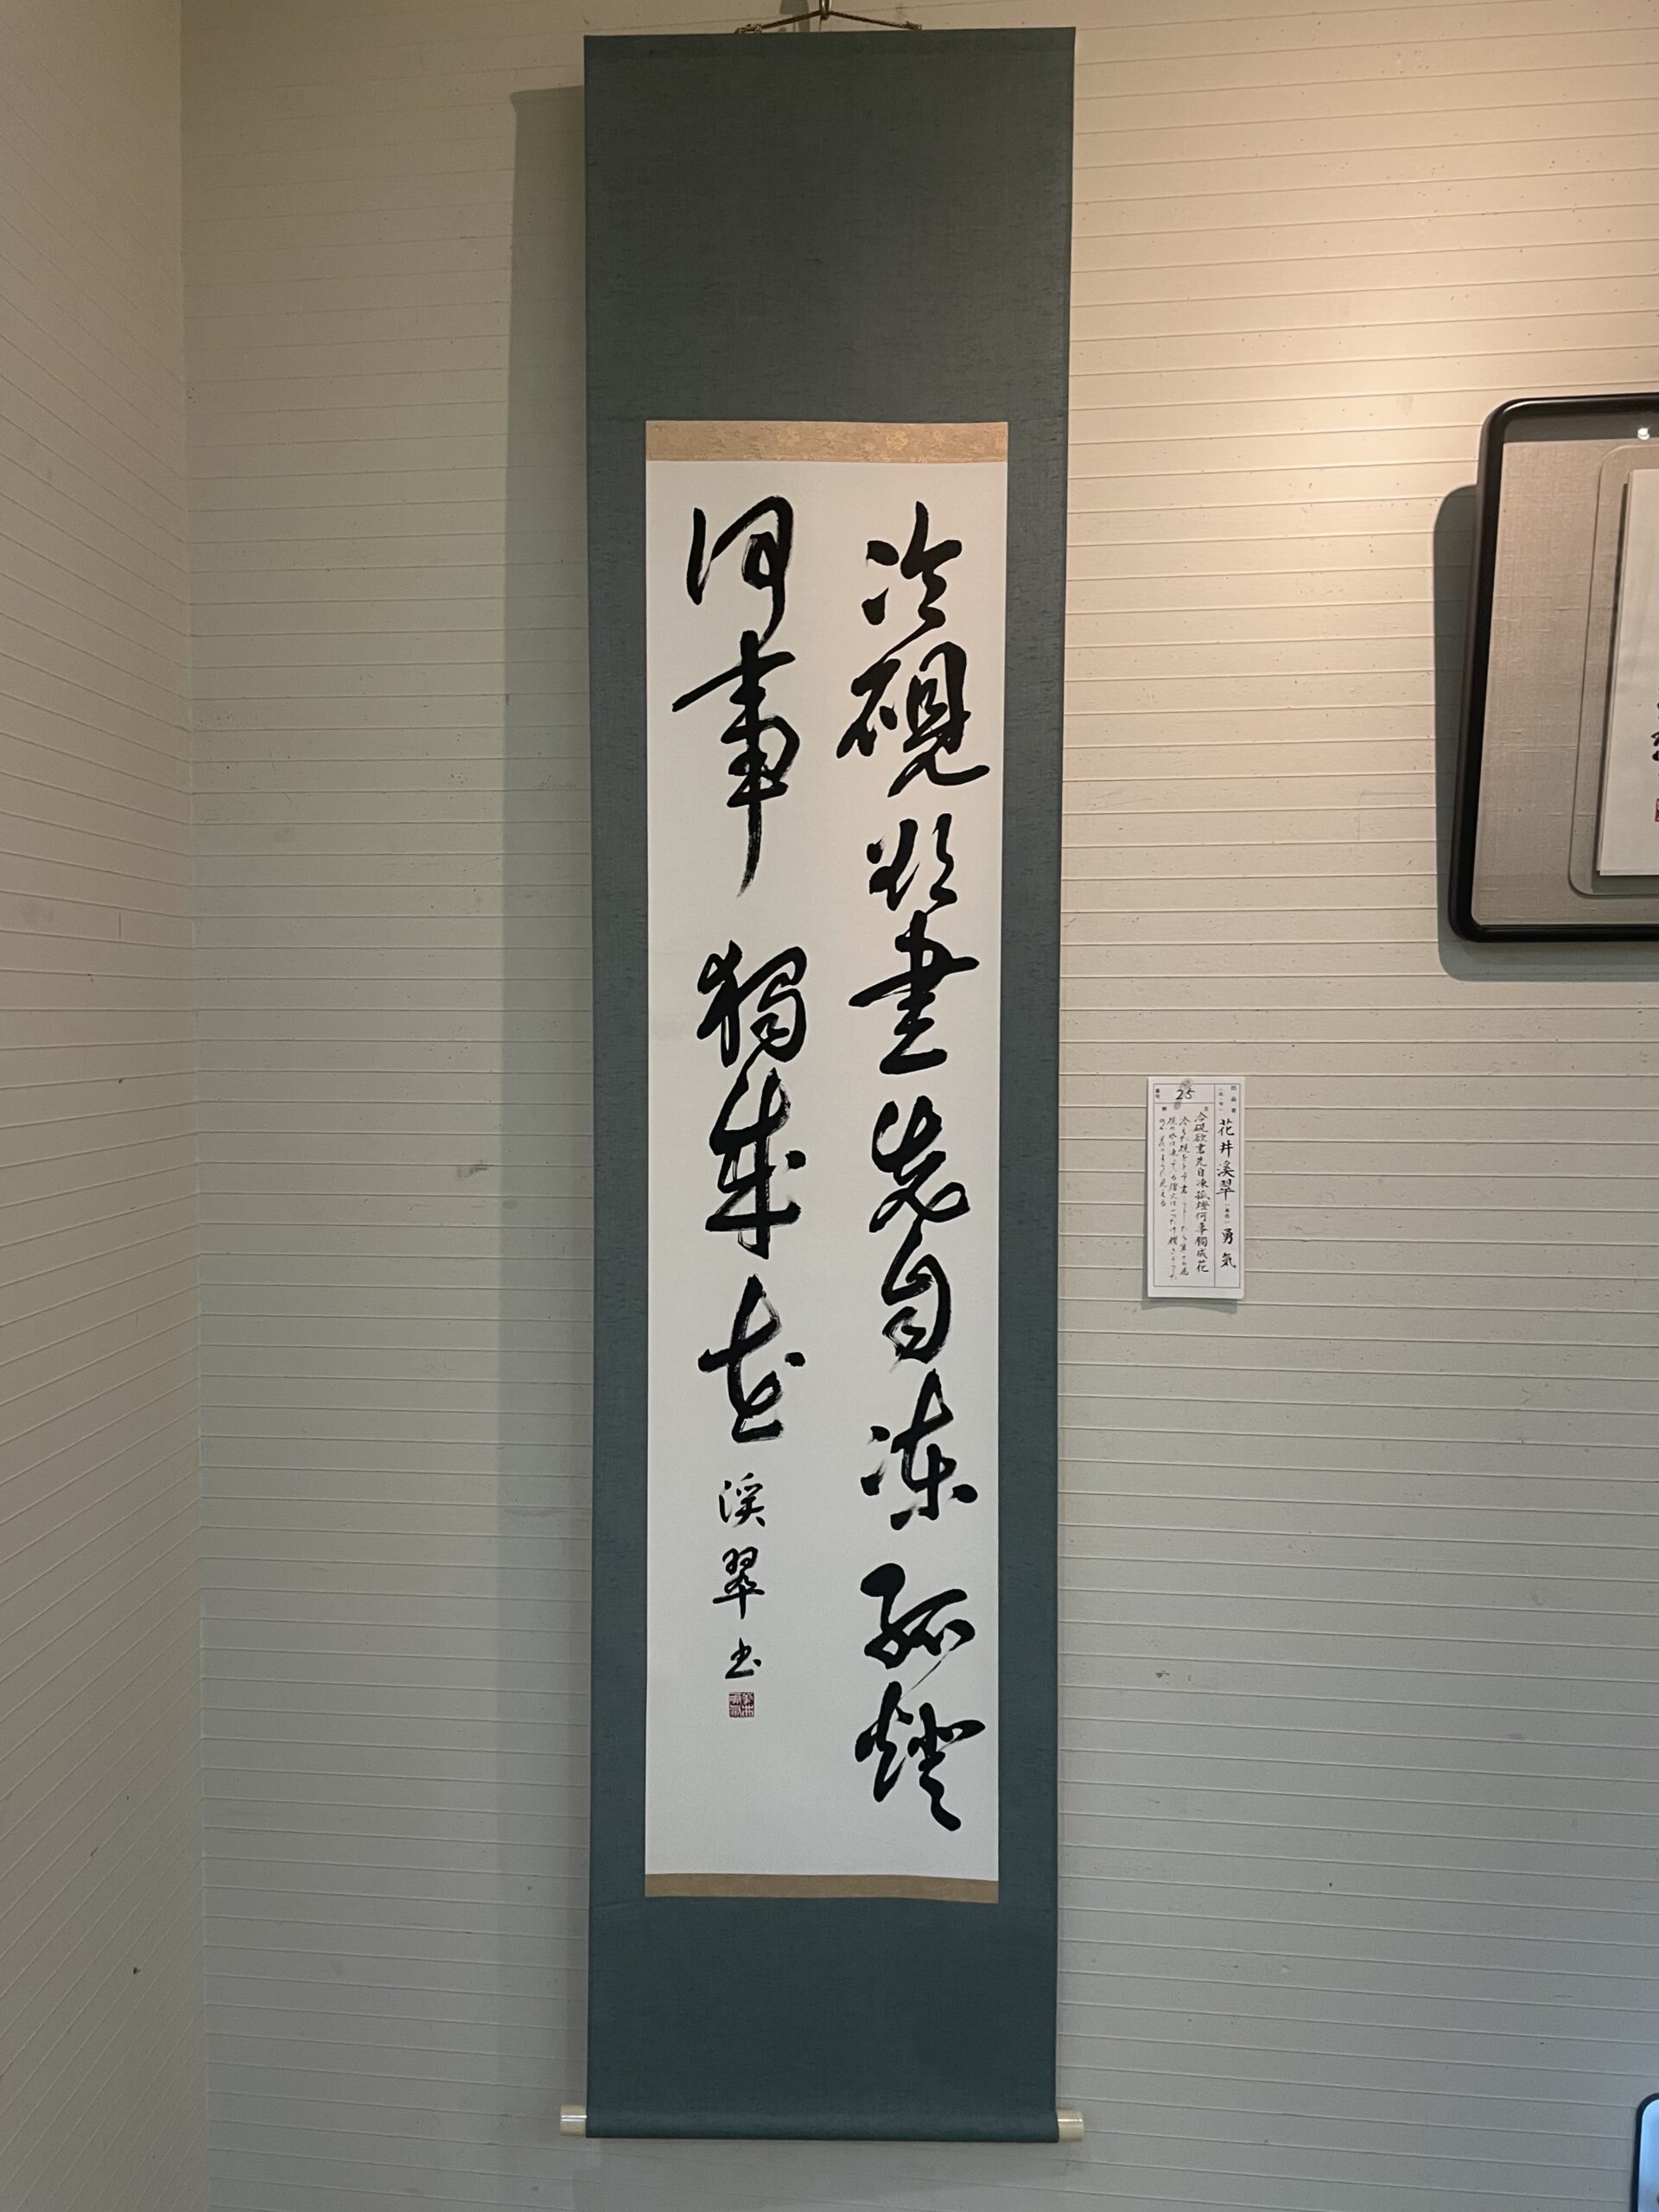 冷硯欲書先自凍孤燈
何事獨成花
溪翠書
25
花井溪翠
勇気
冷硯欲書先自凍孤燈何事獨成花